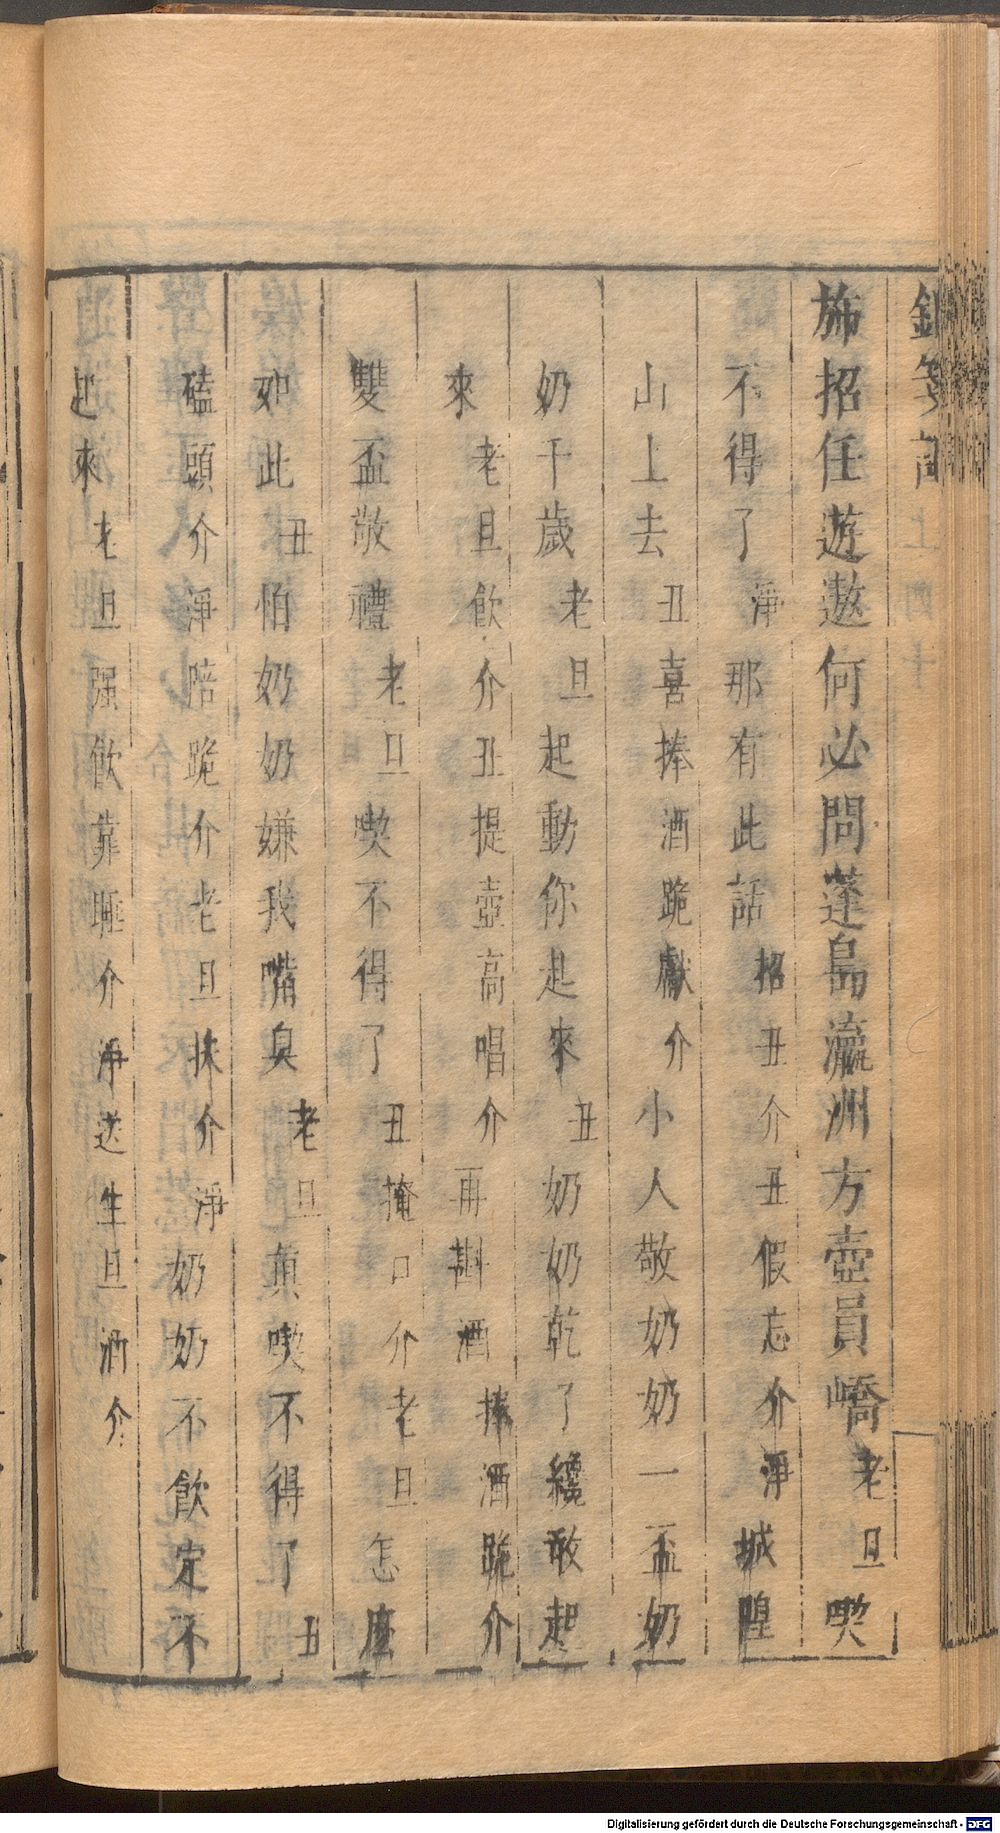 施招任遊遨何必問蓬島瀛洲方壺員嶠老旦喫
不得了淨那有此話招丑介丑假忘介淨城隍
山上去丑喜捧酒跪獻介小人敬奶奶一盃奶
奶千歲老旦起動你起來丑奶奶乾了纔敢起
來老旦飲介丑提壺高唱介再斟酒捧酒跪介
雙盃敬禮老旦喫不得了丑掩口介老旦怎麼
如此丑怕奶奶嫌我嘴臭老旦眞喫不得了丑
磕頭介淨陪跪介老旦抹介淨奶奶不飲定不
起來老旦强飲靠睡介淨送生旦酒介
Digitalisierung gefördert durch die Deutsche Forschungsgemeinschaft - DFG